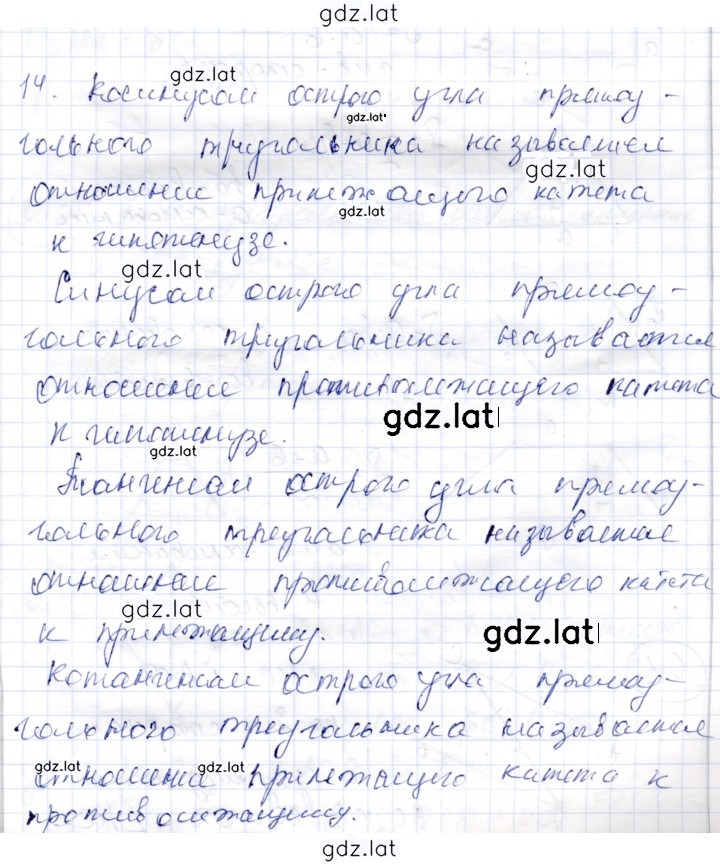 gdz.lat
gdz.lat
14. Косинусом острого угла прямоу-
gdz.lat
гольного треугольника называется
gdz.lat
отношение прилежащего катета
gdz.lat
к гипотенузе.
gdz.lat
Синусом острого угла прямоу-
гольного треугольника называется
отношение противолежащего катета
gdz.lat
к гипотенузе.
gdz.lat
Тангенсом острого угла прямоу-
гольного треугольника называется
отношение противолежащего катета
gdz.lat
к прилежащему.
gdz.lat
Котангенсом острого угла прямоу-
гольного треугольника называется
gdz.lat gdz.lat
отношение прилежащего катета к
противолежащему.
gdz.lat